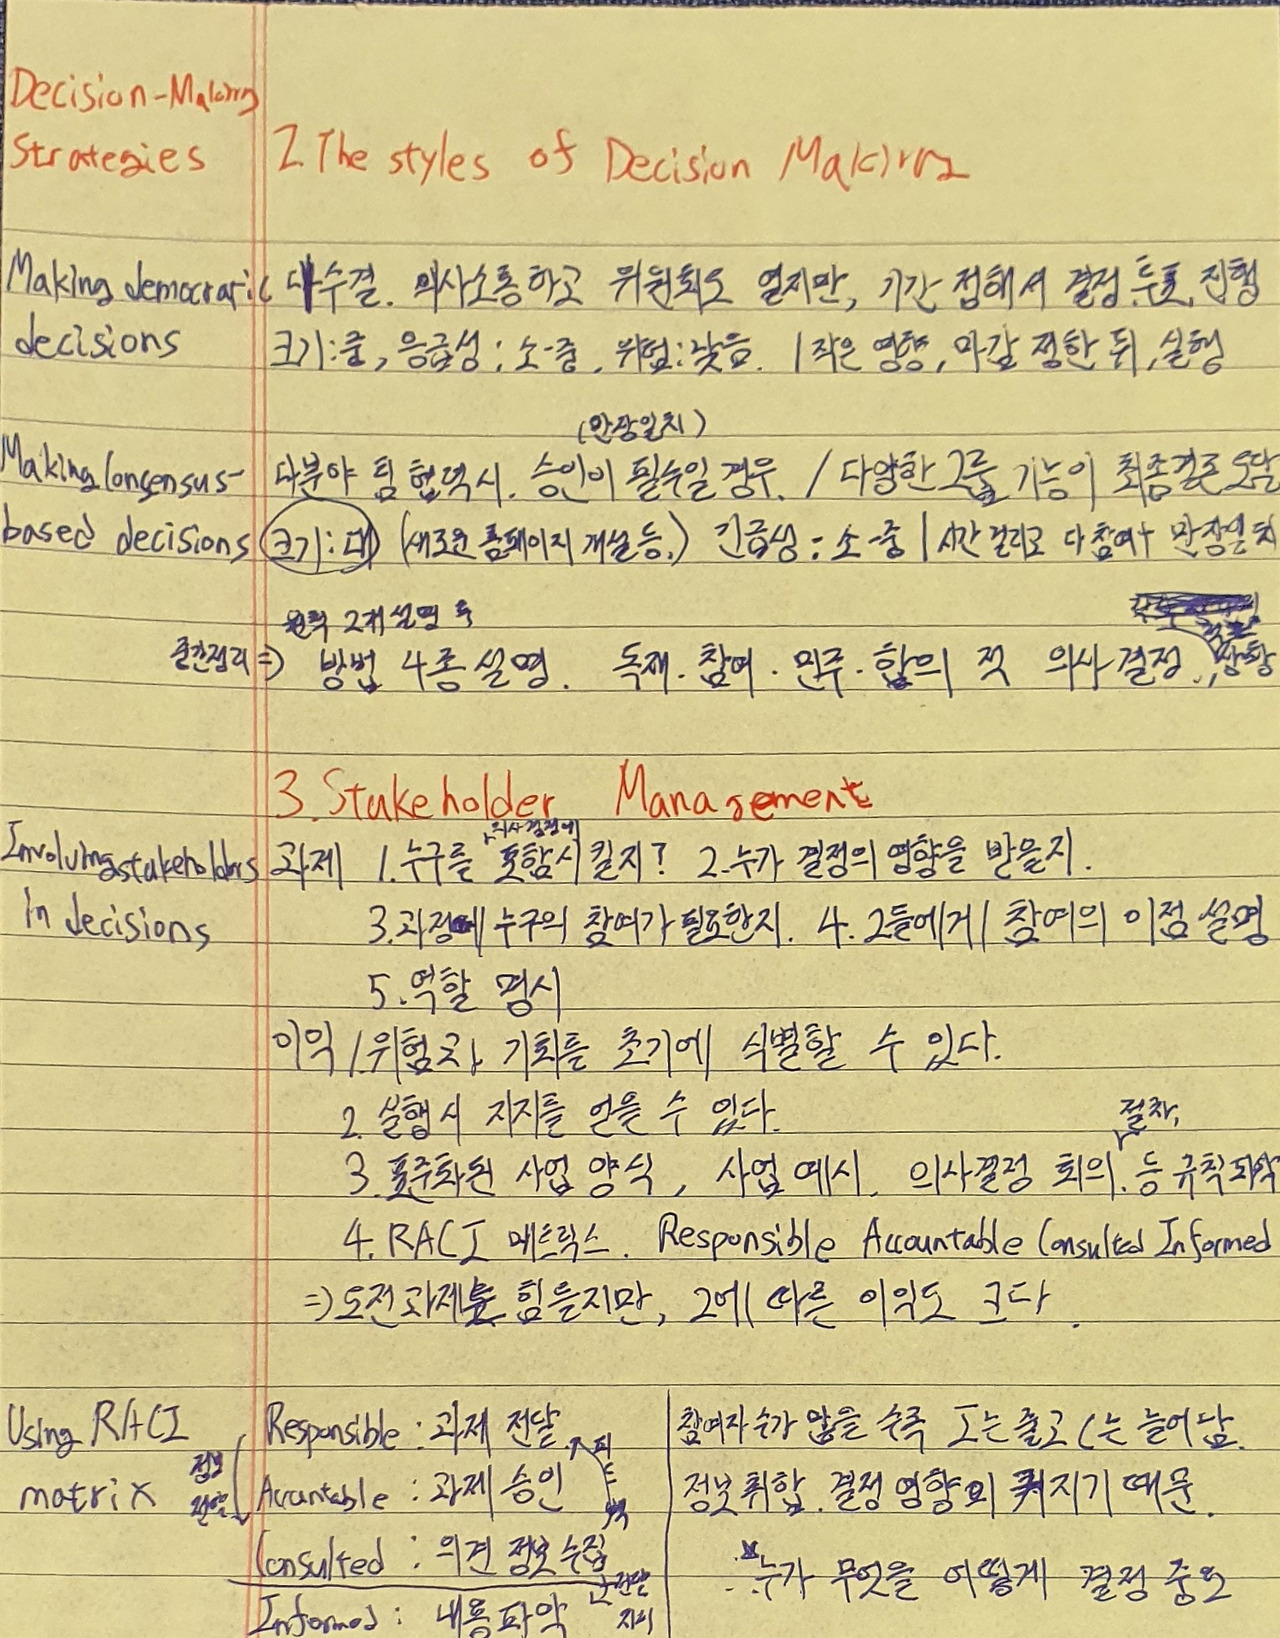 Decision-Making
Strategies
2. The styles of Decision Making
Making democratic
decisions
다수결. 의사소통하고 위원회도 열지만, 기간 정해서 결정 투표, 진행
크기:중, 응급성: 소-중, 위험:낮음. / 작은 영향, 마감 정한 뒤, 실행
(만장일치)
Making Consensus-
based decisions
다분야 팀 협력시. 승인이 필수일 경우. / 다양한 그룹 기능이 최종결론 도달
크기:대 (새로운 홈페이지 개설 등.) 긴급성: 소-중 | 시간 걸리고 다 참여+ 만장일치
2개 설명 후
중간정리 => 방법 4종 설명. 독재·참여·민주·합의 적 의사결정, 상황
3. Stakeholder Management
Involving stakeholders
in decisions
의사결정에
과제 1. 누구를 포함시킬지? 2. 누가 결정의 영향을 받을지.
3. 과정에 누구의 참여가 필요한지. 4. 그들에게 참여의 이점 설명
5. 역할 명시
이익 1. 위험과 기회를 초기에 식별할 수 있다.
2. 실행시 지지를 얻을 수 있다.
절차,
3. 표준화된 사업 양식, 사업 예시, 의사결정 회의, 등 규칙파악
4. RACI 매트릭스. Responsible Accountable Consulted Informed
=> 도전과제 힘들지만, 그에 따른 이익도 크다.
Using RACI
matrix
Responsible : 과제 전달
Accountable : 과제 승인
Consulted : 의견 정보 수집
Informed : 내용파악
참여자 수가 많을 수록 I는 줄고 C는 늘어남.
정보취합. 결정 영향이 커지기 때문.
누가 무엇을 어떻게 결정 중요